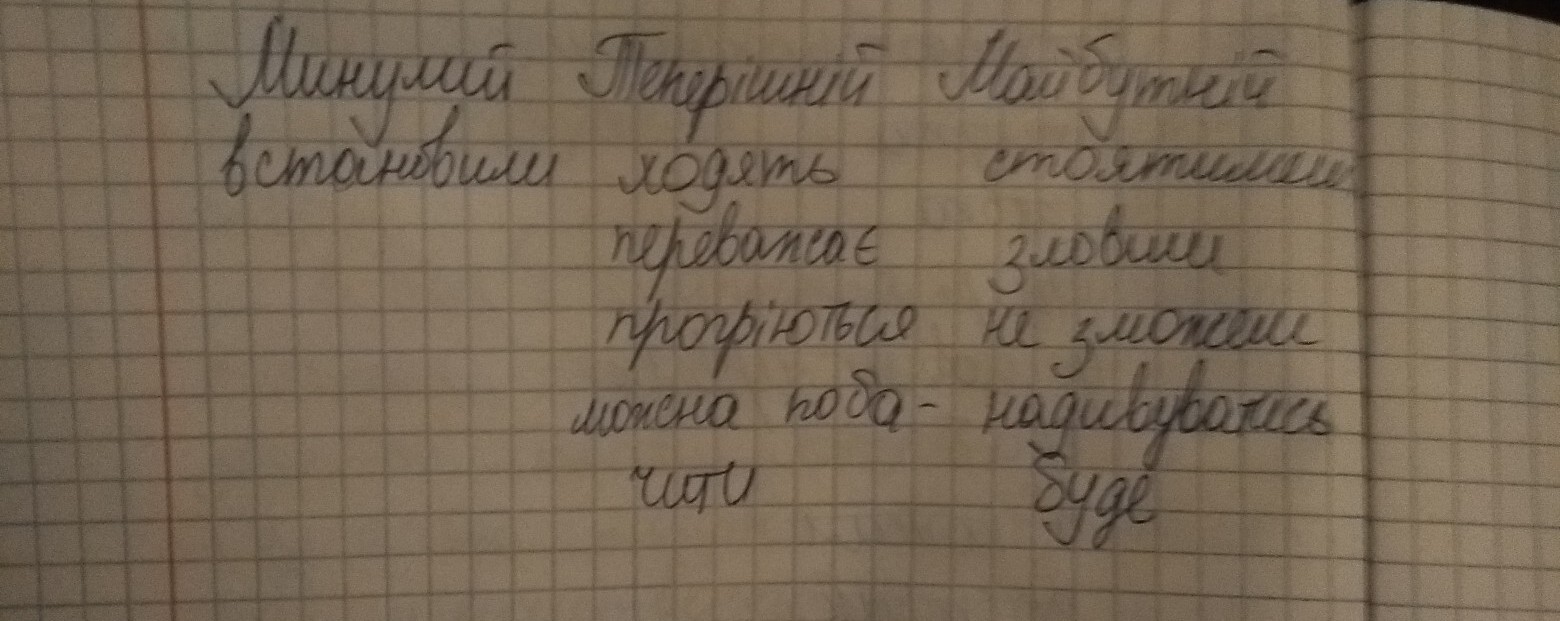 Минулий Теперішній Майбутній
встановили ходять стоятимеш
переважає зловиш
прогріються не зможеш
можна поба- надивуватись
чити буде